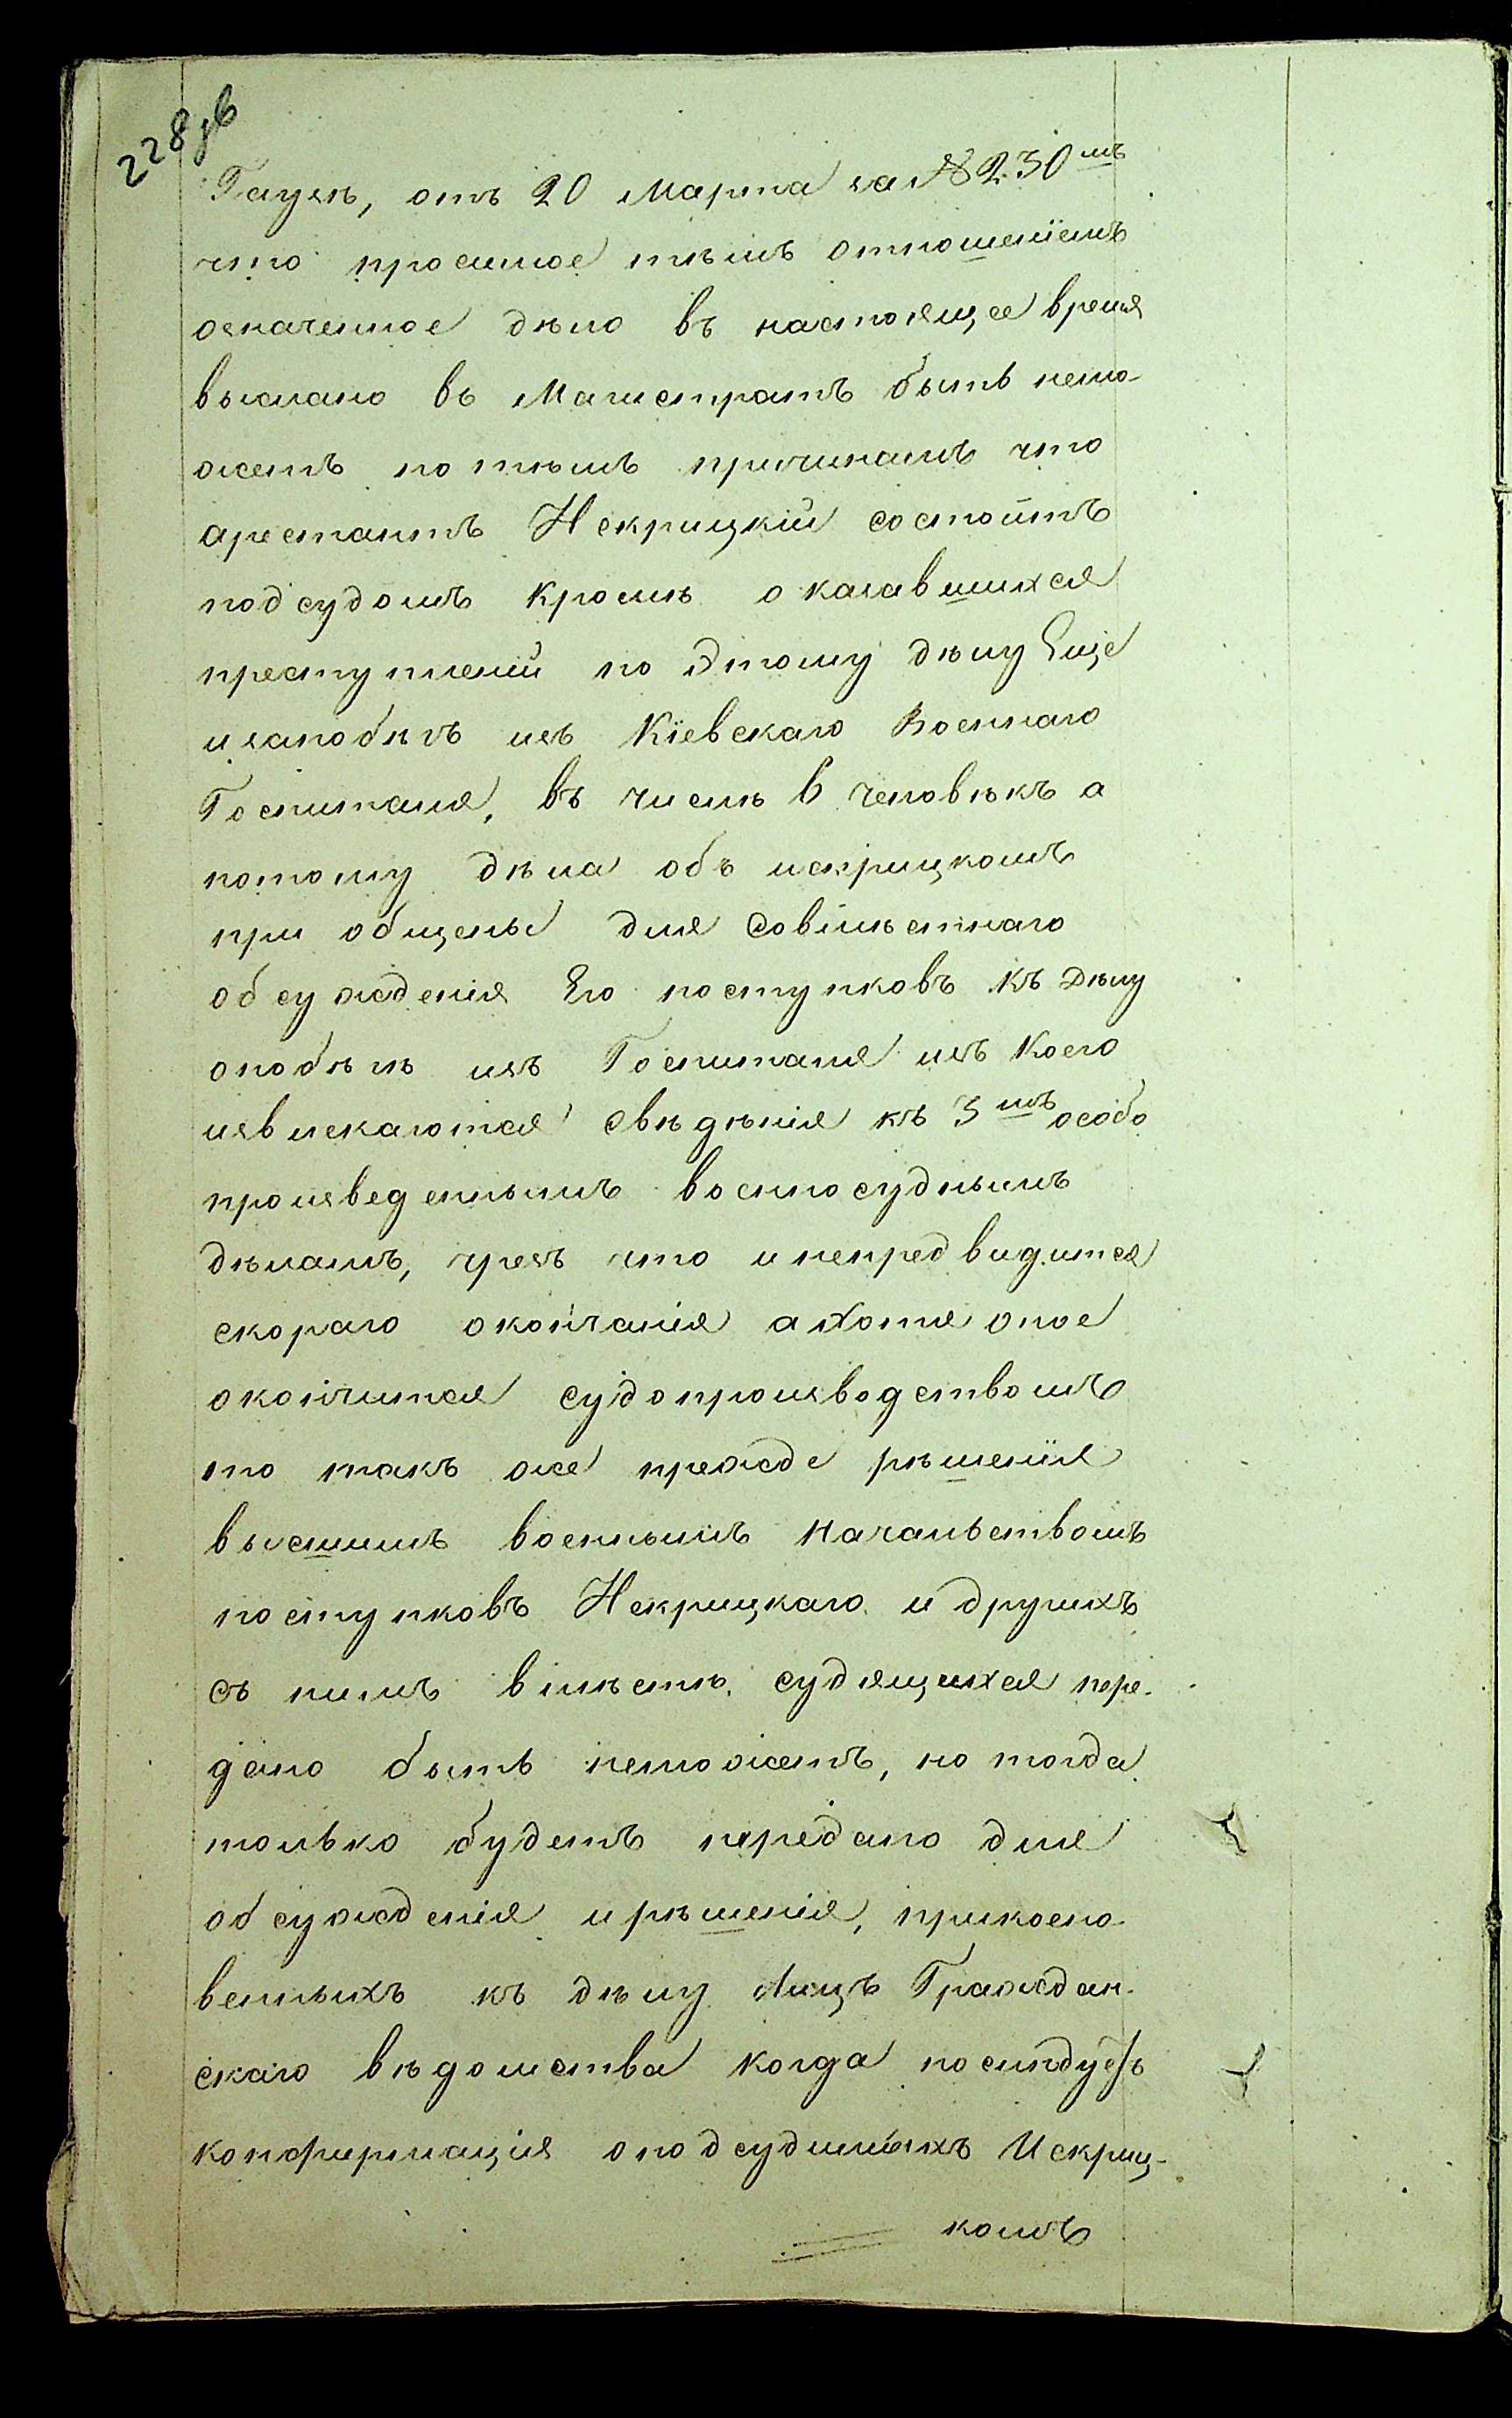 228 зв
Гаузъ, отъ 20 Марта за № 230мъ
что просимое тѣмъ отношенїемъ
означенное дѣло въ настоящее время
выслано въ Магистратъ быть немо-
жетъ по тѣмъ причинамъ что
арестантъ Искрицкій состоитъ
подсудомъ кромѣ оказавшихся
преступленій по Этому дѣлу Еще
изапобѣгъ изъ Кїевскаго Военнаго
Госпиталя, въ числѣ 6 человѣкъ а
потому дѣла объ искрицкомъ
при общены для Совімѣстнаго
обсужденія Его поступковъ къ дѣлу
опобѣгѣ изъ Госпиталя изъ Коего
извлекаются Свѣдѣнія къ 3мъ особо
произведеннымъ военносуднымъ
дѣламъ, чрезъ что и непредвидится
скораго окончанія а Хотя оное
окончится судопроизводствомъ
то такъ же прежде рѣшенїя
высшимъ военнымъ Начальствомъ
поступковъ Искрицкаго и другихъ
съ нимъ вмѣстѣ судящихся пере-
дано быть неможетъ, но тогда
только будетъ передано для
обсужденія и рѣшенія, прикосно-
венныхъ къ дѣлу Лицъ Граждан-
скаго вѣдомства когда послѣдуетъ
конфирмація о подсудимыхъ Искриц-
комъ